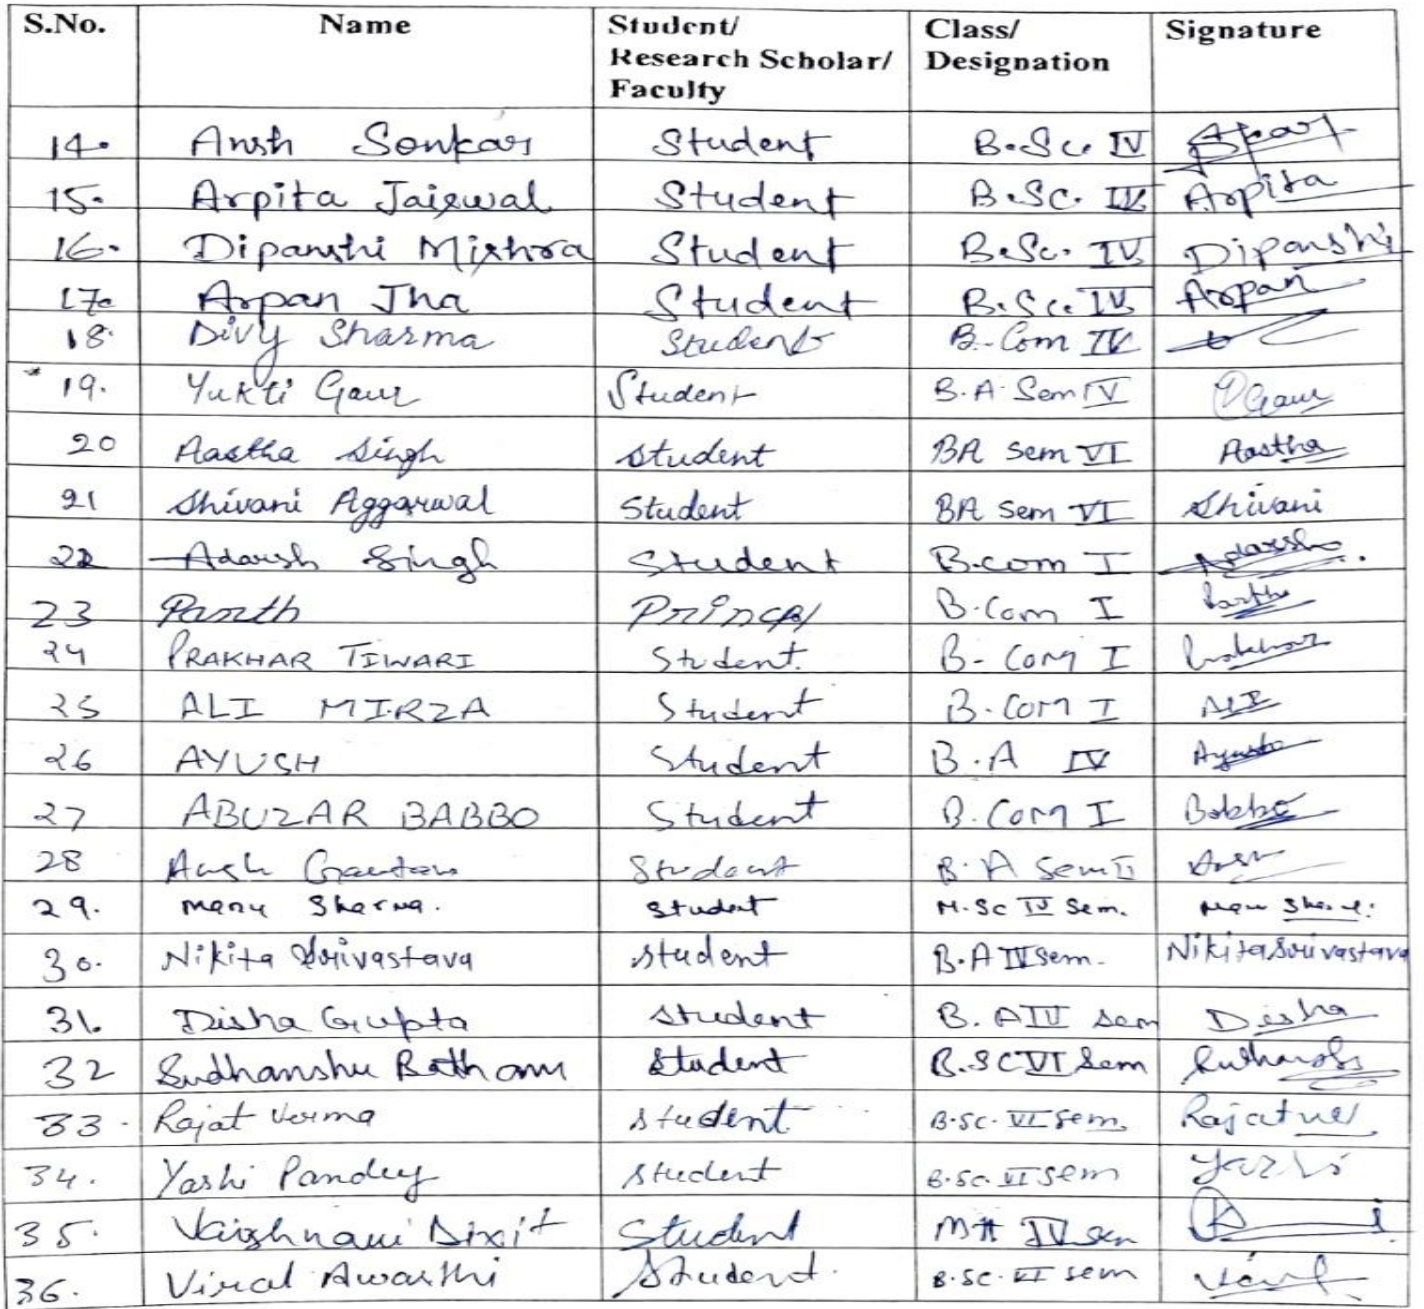 S.No. Name Student/ Research Scholar/ Faculty Class/ Designation Signature
14. Ansh Sonkar Student B.Sc. IV
15. Arpita Jaiswal Student B.Sc. IV Arpita
16. Dipanshi Mishra Student B.Sc. IV Dipanshi
17. Arpan Jha Student B.Sc. IV Arpan
18. Divy Sharma Student B.Com IV
19. Yukti Gaur Student B.A Sem IV Gaur
20 Aastha Singh Student BA Sem VI Aastha
21 Shivani Aggarwal Student BA Sem VI Shivani
22 Adarsh Singh Student B.com I Adarsh
23 Parth B.Com I Parth
24 PRAKHAR TIWARI Student. B-Com I Prakhar
25 ALI MIRZA Student B.COM I ALI
26 AYUSH Student B.A IV Ayush
27 ABUZAR BABBO Student B.Com I Babbo
28 Ansh Gautam Student B.A Sem II Ansh
29. Manu Sharma. Student M.Sc IV Sem. Manu
30. Nikita Srivastava Student B.A IV Sem. Nikita Srivastava
31. Disha Gupta Student B.A Sem Disha
32 Sudhanshu Batham Student B.SC VI Sem
33. Rajat Verma Student B.Sc. VI Sem. Rajat
34. Yashi Pandey Student B.Sc. VI Sem Yashi
35. Vaishnavi Dixit Student IV Sem
36. Viral Awasthi Student. B.Sc. VI Sem